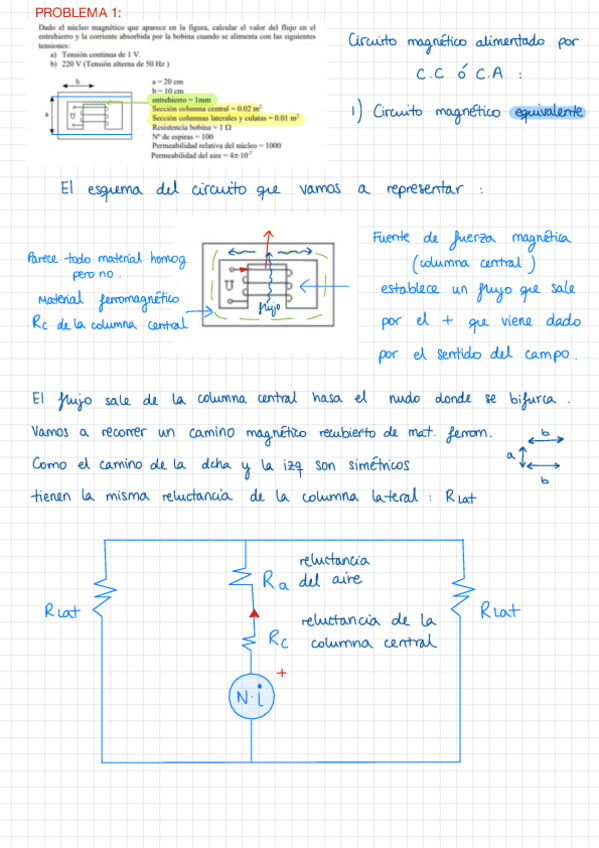 PROBLEMA 1:
Dado el núcleo magnético que aparece en la figura, calcular el valor del flujo en el
entrehierro y la corriente absorbida por la bobina cuando se alimenta con las siguientes
tensiones:
a) Tensión continua de 1 V.
b) 220 V (Tensión alterna de 50 Hz )
b
a
U
a = 20 cm
b = 10 cm
entrehierro = 1mm
Sección columna central = 0.02 m²
Sección columnas laterales y culatas = 0.01 m²
Resistencia bobina = 1 Ω
Nº de espiras = 100
Permeabilidad relativa del núcleo = 1000
Permeabilidad del aire = 4π·10⁻⁷
Circuito magnético alimentado por
C.C ó C.A :
1) Circuito magnético equivalente
El esquema del circuito que vamos a representar :
Parece todo material homog
pero no .
Material ferromagnético
Rc de la columna central
U
flujo
Fuente de fuerza magnética
(columna central )
establece un flujo que sale
por el + que viene dado
por el sentido del campo .
El flujo sale de la columna central hasa el nudo donde se bifurca .
Vamos a recorrer un camino magnético recubierto de mat. ferrom.
Como el camino de la dcha y la izq son simétricos
tienen la misma reluctancia de la columna lateral : RLat
b
a
b
RLat
Ra
reluctancia
del aire
Rc
reluctancia de la
columna central
RLat
+
N·i